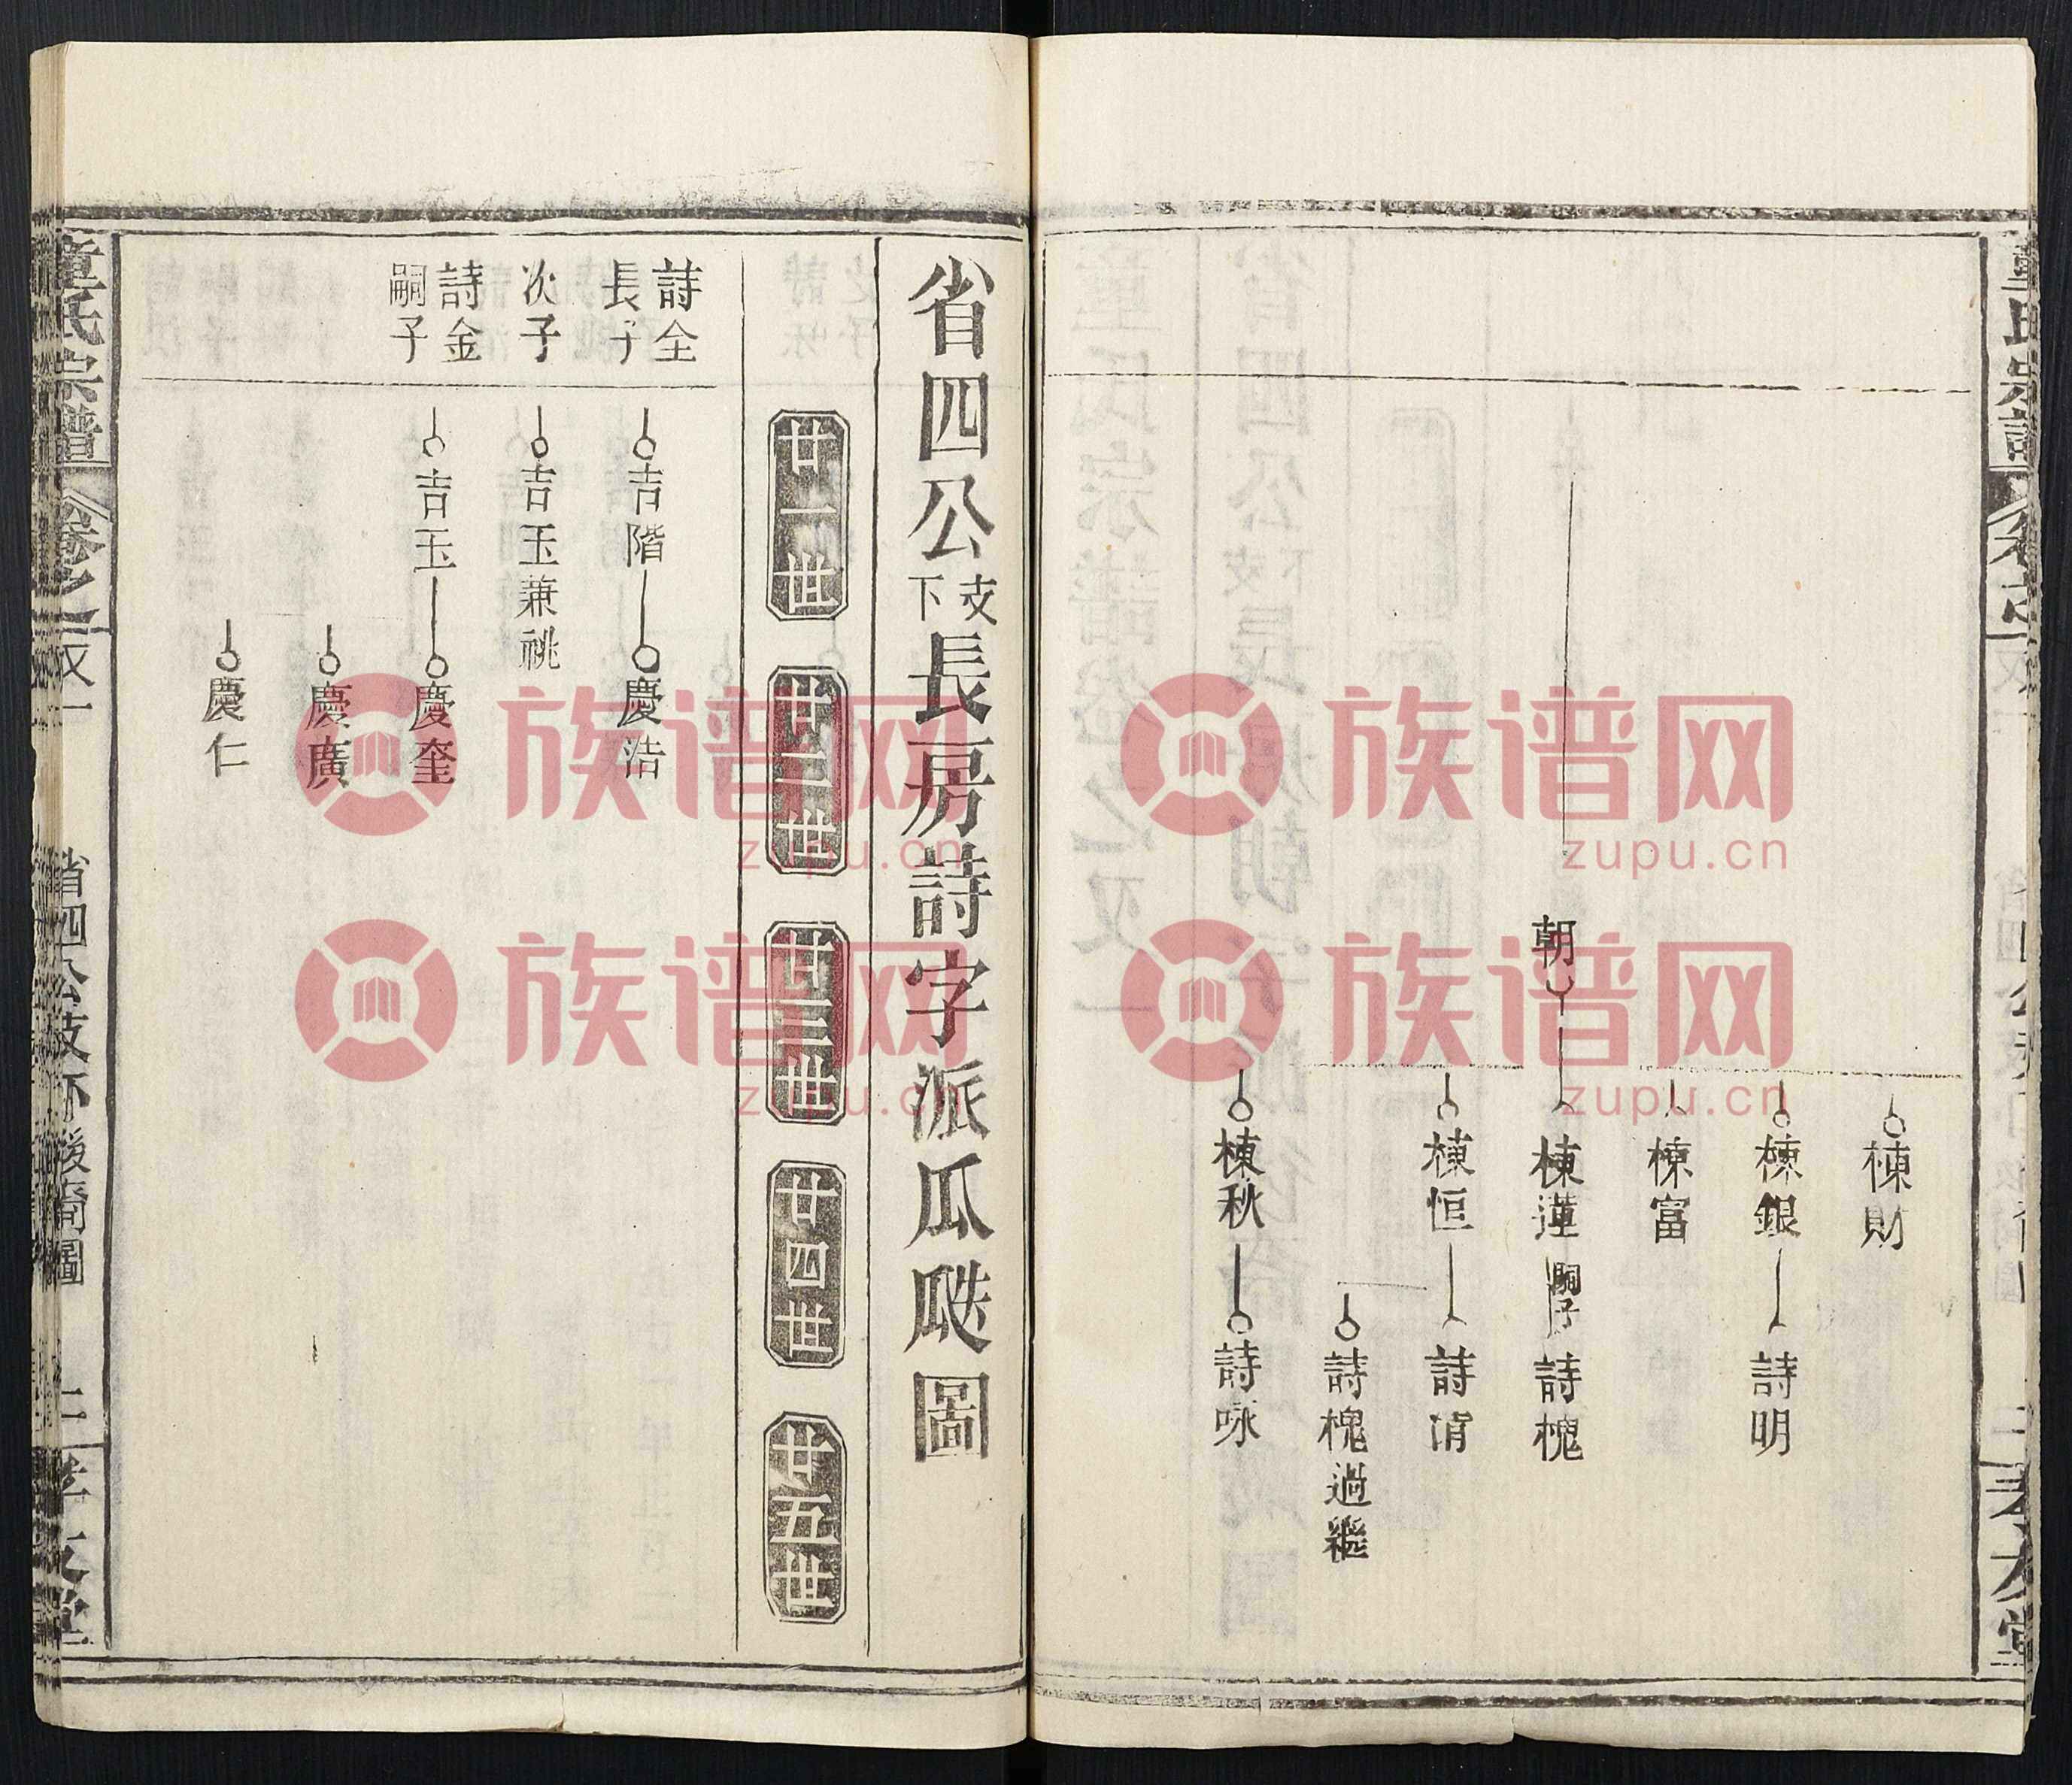 棟財
棟銀
詩明
棟富
朝
棟蓮
嗣子
詩槐
棟恒
詩涓
詩槐過繼
棟秋
詩咏
省四公支下長房詩字派瓜瓞圖
廿一世
廿二世
廿三世
廿四世
廿五世
詩全
長子
吉階
慶浩
次子
吉玉兼祧
詩金
嗣子
吉玉
慶奎
慶廣
慶仁
童氏宗譜
卷之
省四公支下後裔圖
族谱网
zupu.cn
族谱网
zupu.cn
族谱网
zupu.cn
族谱网
zupu.cn